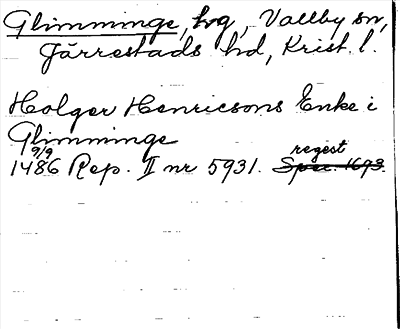 Glimminge, hvg, Vallby sn,
Järrestads hd, Krist. l.
Holger Henricsons Enke i
Glimminge
9/9 regest
1486 Rep. II nr 5931. Spec. 1693.